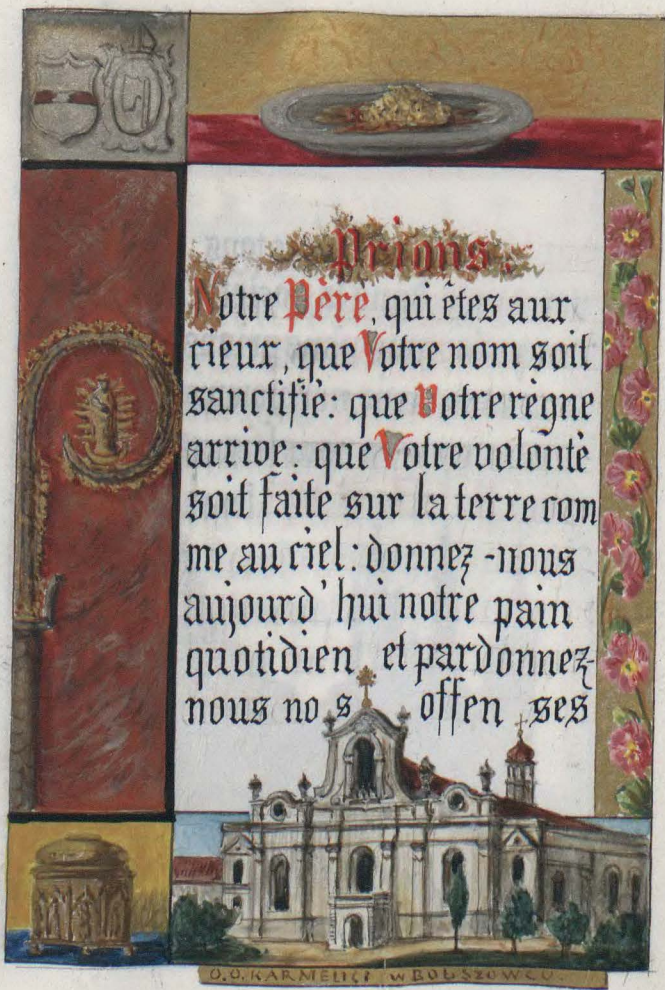 Prions.
Notre Père, qui êtes aux
cieux, que Votre nom soit
sanctifié: que Votre règne
arrive: que Votre volonté
soit faite sur la terre com
me au ciel: donnez-nous
aujourd'hui notre pain
quotidien et pardonnez-
nous nos offenses
O.O. KARMELICI w BOŁSZOWCU.